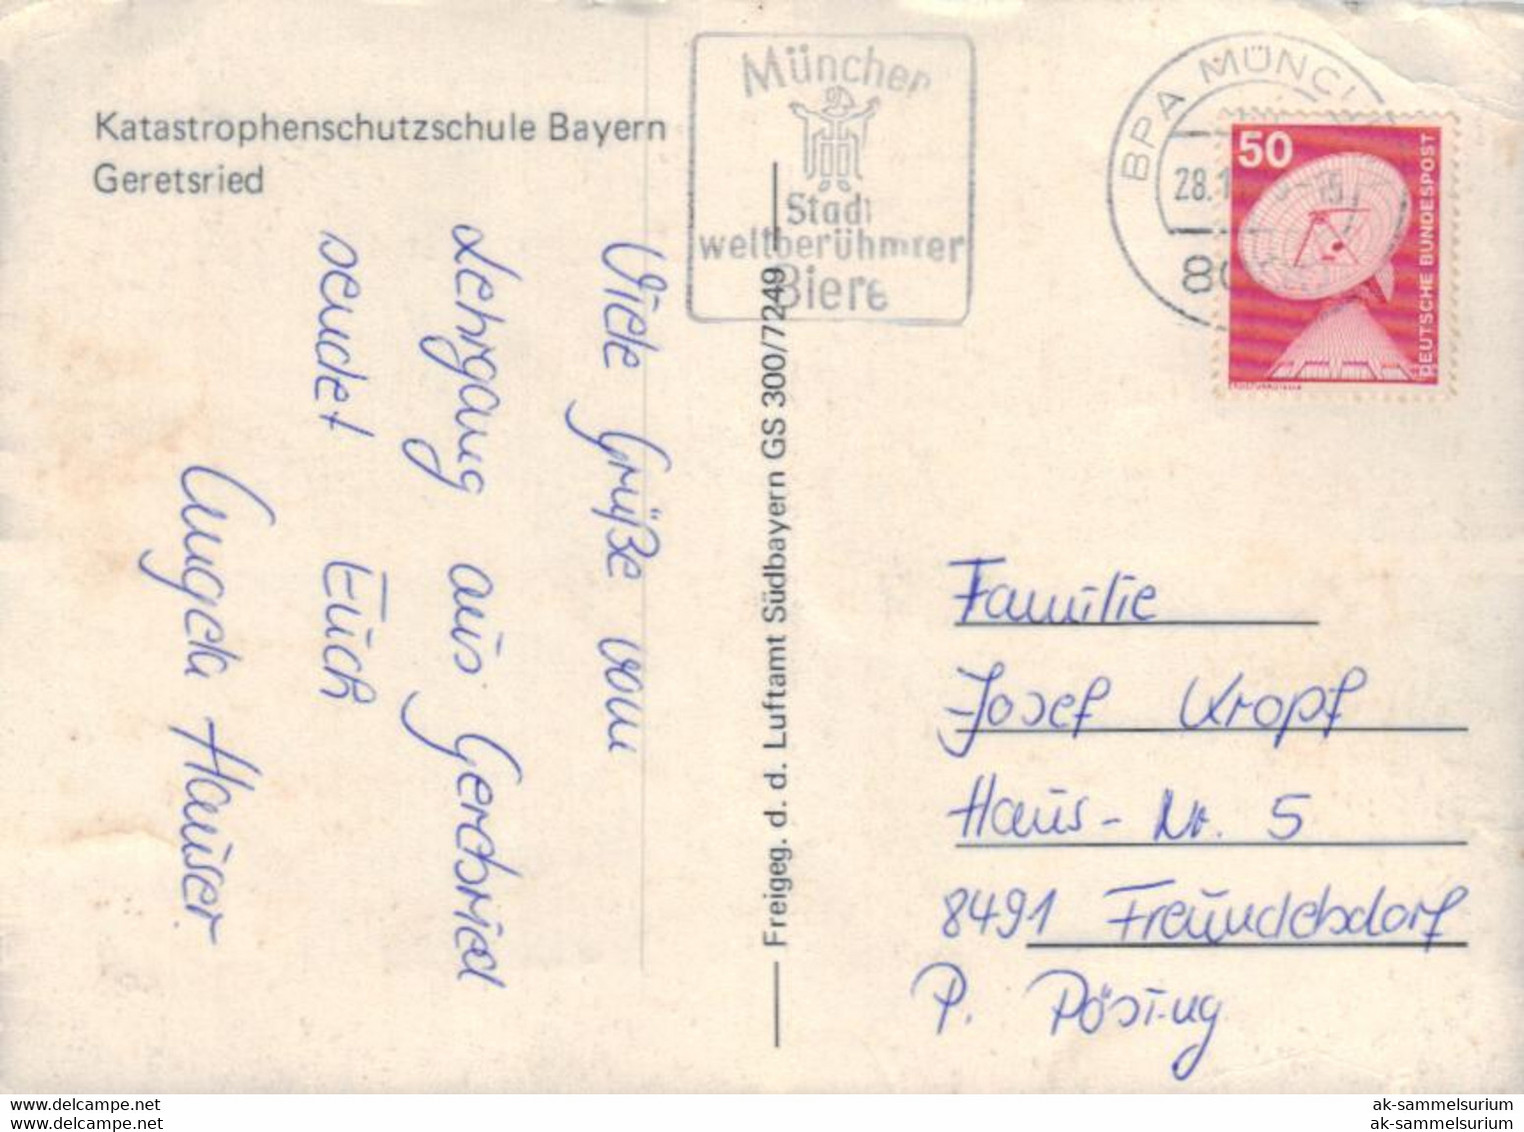 Katastrophenschutzschule Bayern
Geretsried
München
Stadt
weltberühmter
Biere
BPA MÜNCH
28.1
50
DEUTSCHE BUNDESPOST
Viele Grüße vom
Lehrgang aus Geretsried
sendet Euch
Angela Hauser
Freigeg. d. d. Luftamt Südbayern GS 300/7249
Familie
Josef Kropf
Haus-Nr. 5
8491 Freundelsdorf
P. Pösing
www.delcampe.net
ak-sammelsurium
ak-sammelsurium